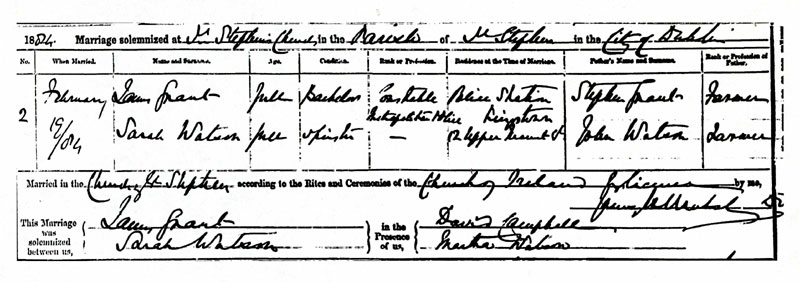 1884. Marriage solemnized at St Stephens Church, in the Parish of St Stephen in the City of Dublin
No. When Married. Name and Surname. Age. Condition. Rank or Profession. Residence at the Time of Marriage. Father's Name and Surname. Rank or Profession of Father.
2 February James Grant full Bachelor Constable Metropolitan Police Police Station Kingstown Stephen Grant Farmer
19/84 Sarah Watson full Spinster — 62 Upper Mount St John Watson Farmer
Married in the Church of St Stephen according to the Rites and Ceremonies of the Church of Ireland by license by me,
This Marriage was solemnized between us, James Grant in the Presence of us, David Campbell
Sarah Watson Martha Watson